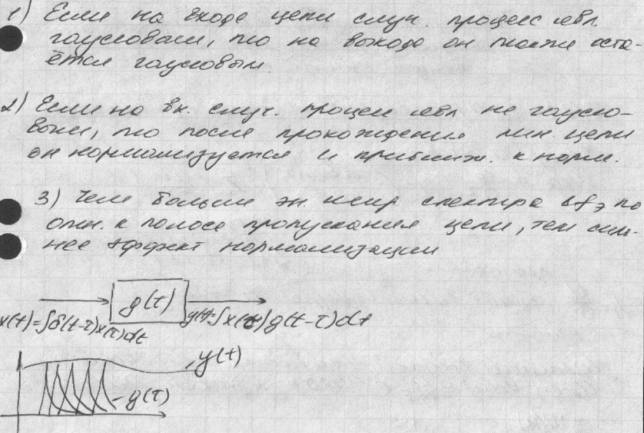 1) Если на входе цепи случ. процесс явл.
гауссовым, то на выходе он также оста-
ётся гауссовым.
2) Если на вх. случ. процесс явл. не гауссо-
вым, то после прохождения лин. цепи
он нормализуется и приближ. к норм.
3) Чем больше эн. шир. спектра Δfэ по
отн. к полосе пропускания цепи, тем силь-
нее эффект нормализации
g(τ)
x(t)=∫δ(t-τ)x(τ)dτ
y(t)=∫x(τ)g(t-τ)dτ
y(t)
g(τ)